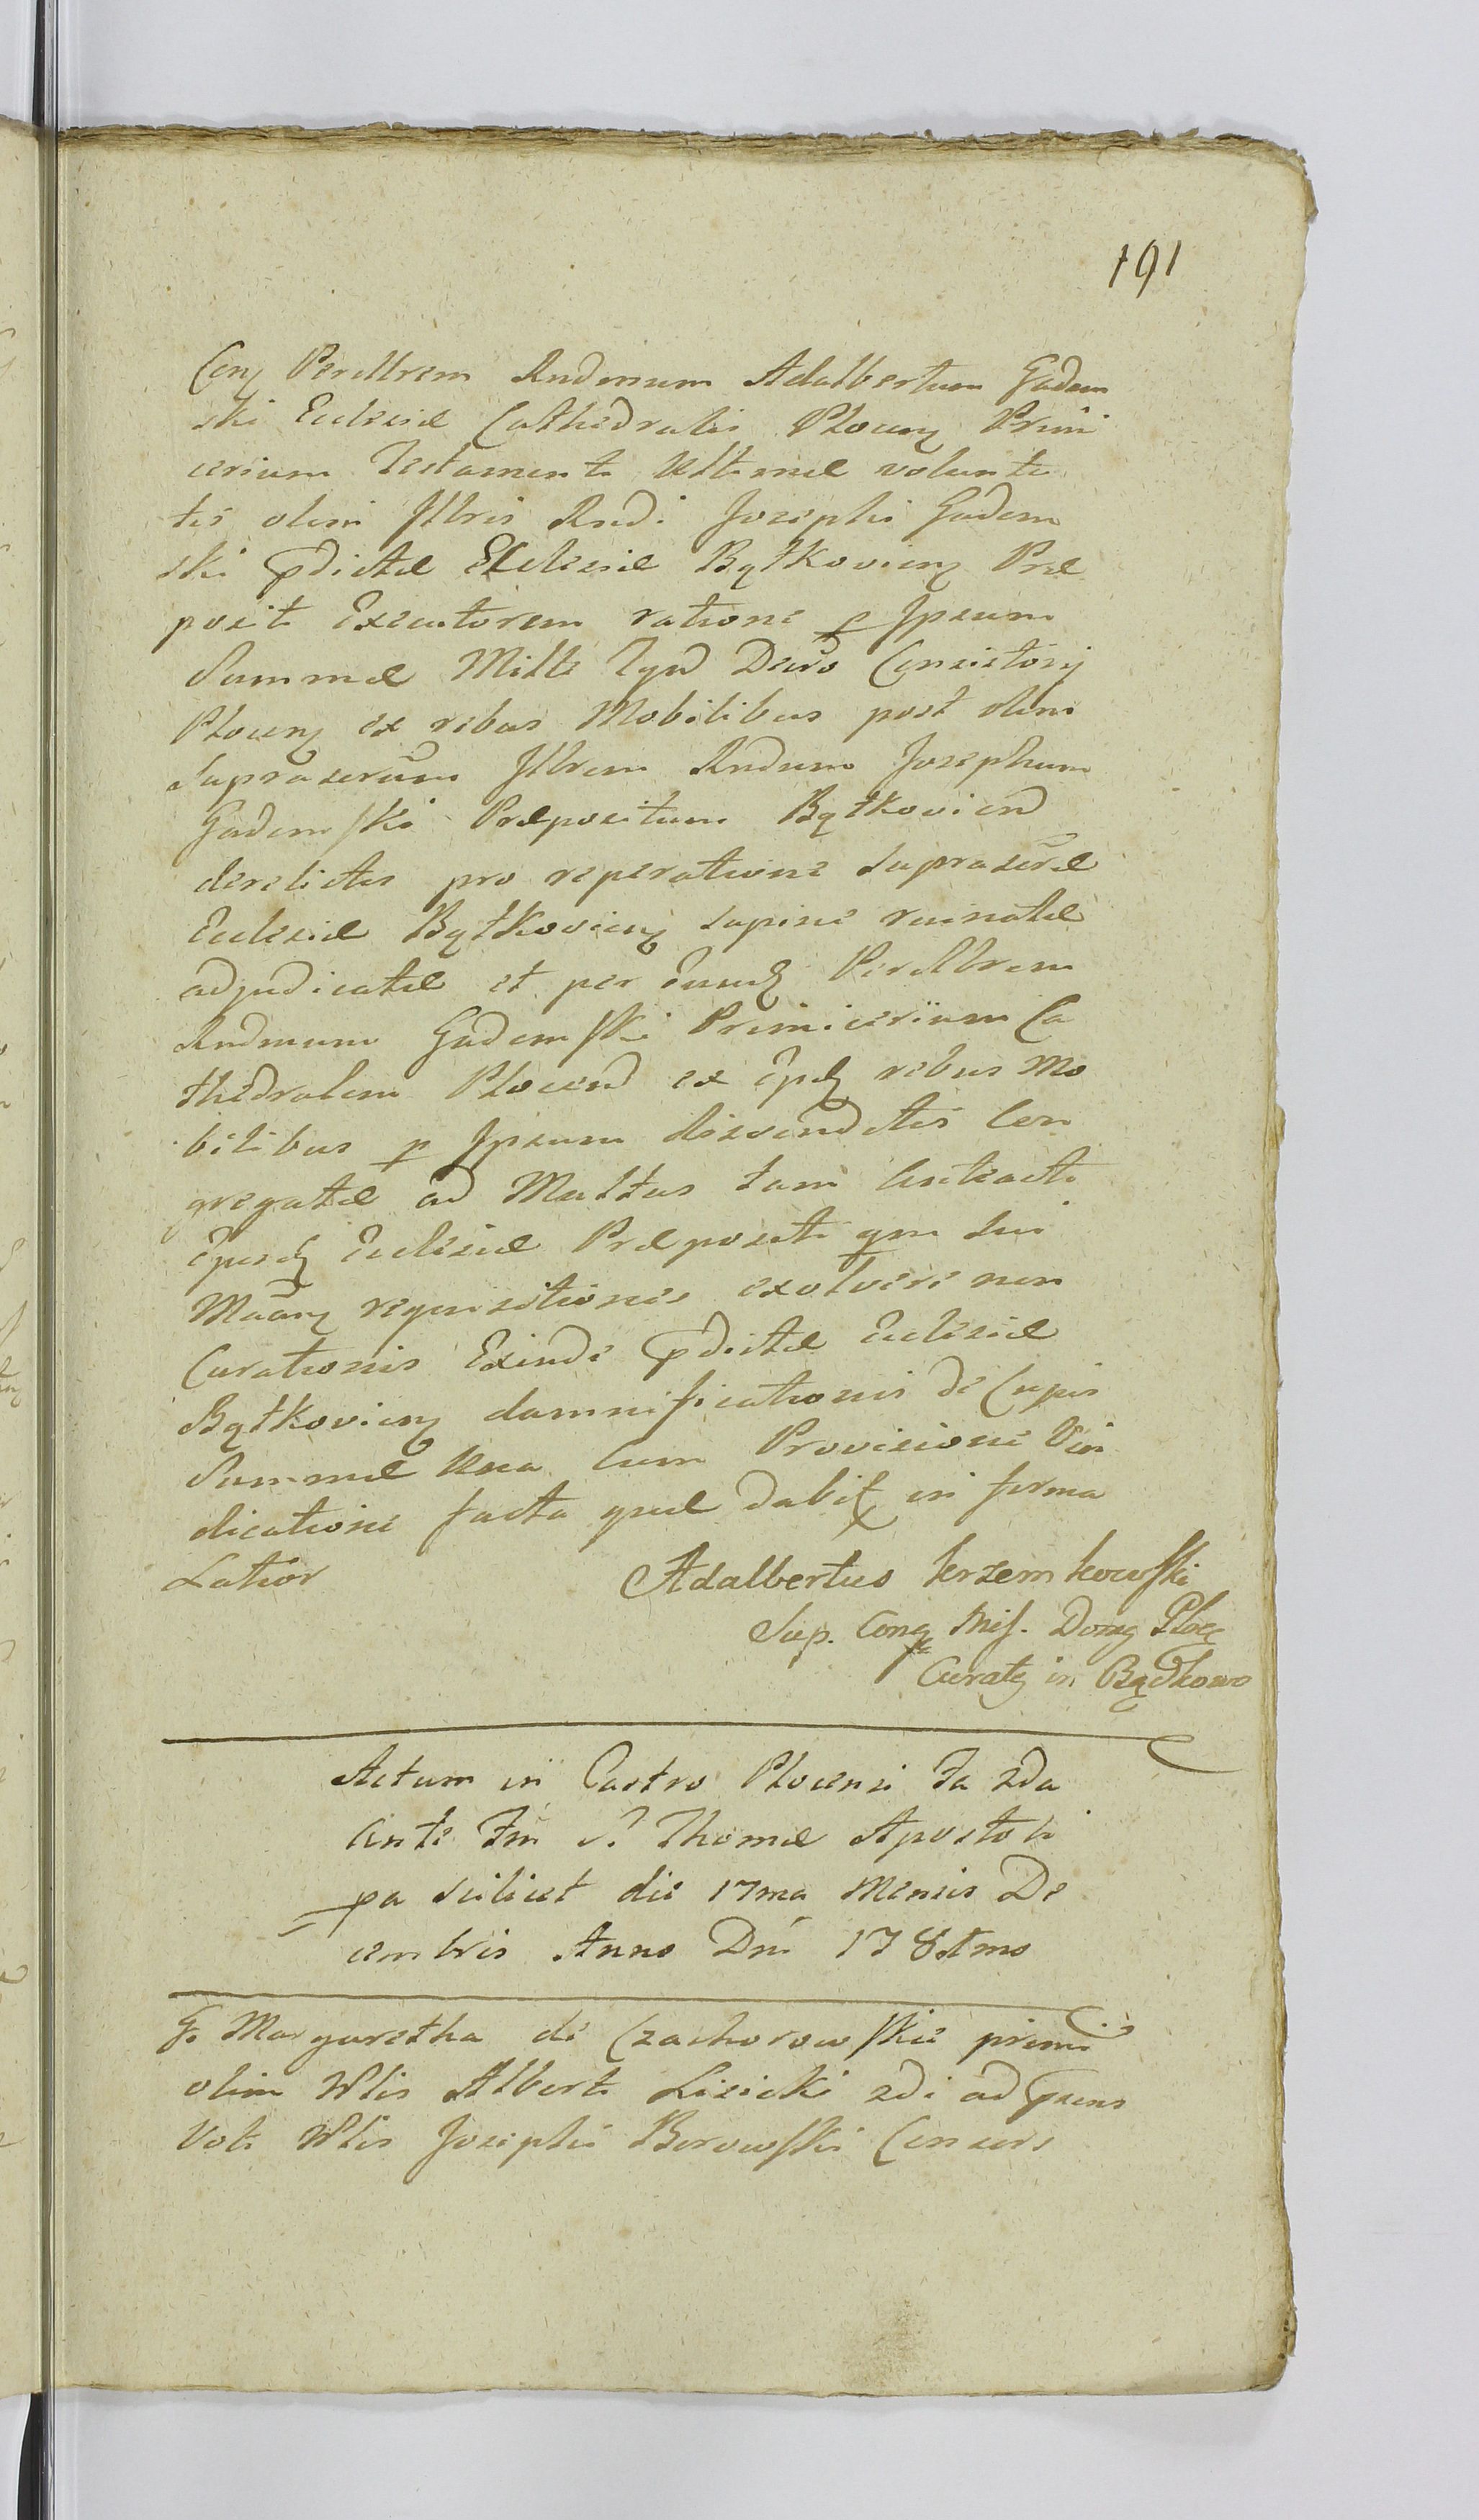 191
Conz Perillrem Rndmum Adalbertum Gadom
ski Ecclesiæ Cathedralis Plocenz Primi
cerium Testamenti Ultimæ volunta
tis olim Illris Rndi Josephi Gadom
ski pdictæ Ecclesiæ Bątkovienz Præ
positi Executorem ratione p Ipsum
Summæ Mille Tynd Decro Consistorij
Plocenz ex rebus Mobilibus post olim
Suprascrum Illrem Rndum Josephum
Gadomski Præpositum Bątkoviend
derelictis pro reperatione suprascræ
Ecclesiæ Bątkovienz supine ruinatæ
adjudicatæ et per eund Perillrem
Rndmum Gadomski Primicerium Ca
thedralem Plocend ex ijsd rebus Mo
bilibus p Ipsum disvenditis Con
gregatæ ad Multas tam Anteacti
Ejusd Ecclesiæ Præpositi qm sui
requisitiones exolvere non
Curationis Exinde pdictæ Ecclesiæ
Bątkovienz damnificationis de Cujus
Summæ Una Cum Provisione Vin
dicatione facta quæ dabit in forma
Latior
Adalbertus Krzemkowski
Sup. Cong Mis. Domg Ploc
Curatg in Bądkowo
Actum in Castro Plocensi Fa 2da
Ante Fm S. Thomæ Apostoli
pa scilicet die 17ma Mensis De
cembris Anno Dni
G. Margaretha de Czachorowskie primi
olim Mlis Alberti Lisicki 2di ad psens
Voti Mlis Josephi Borowski Consors